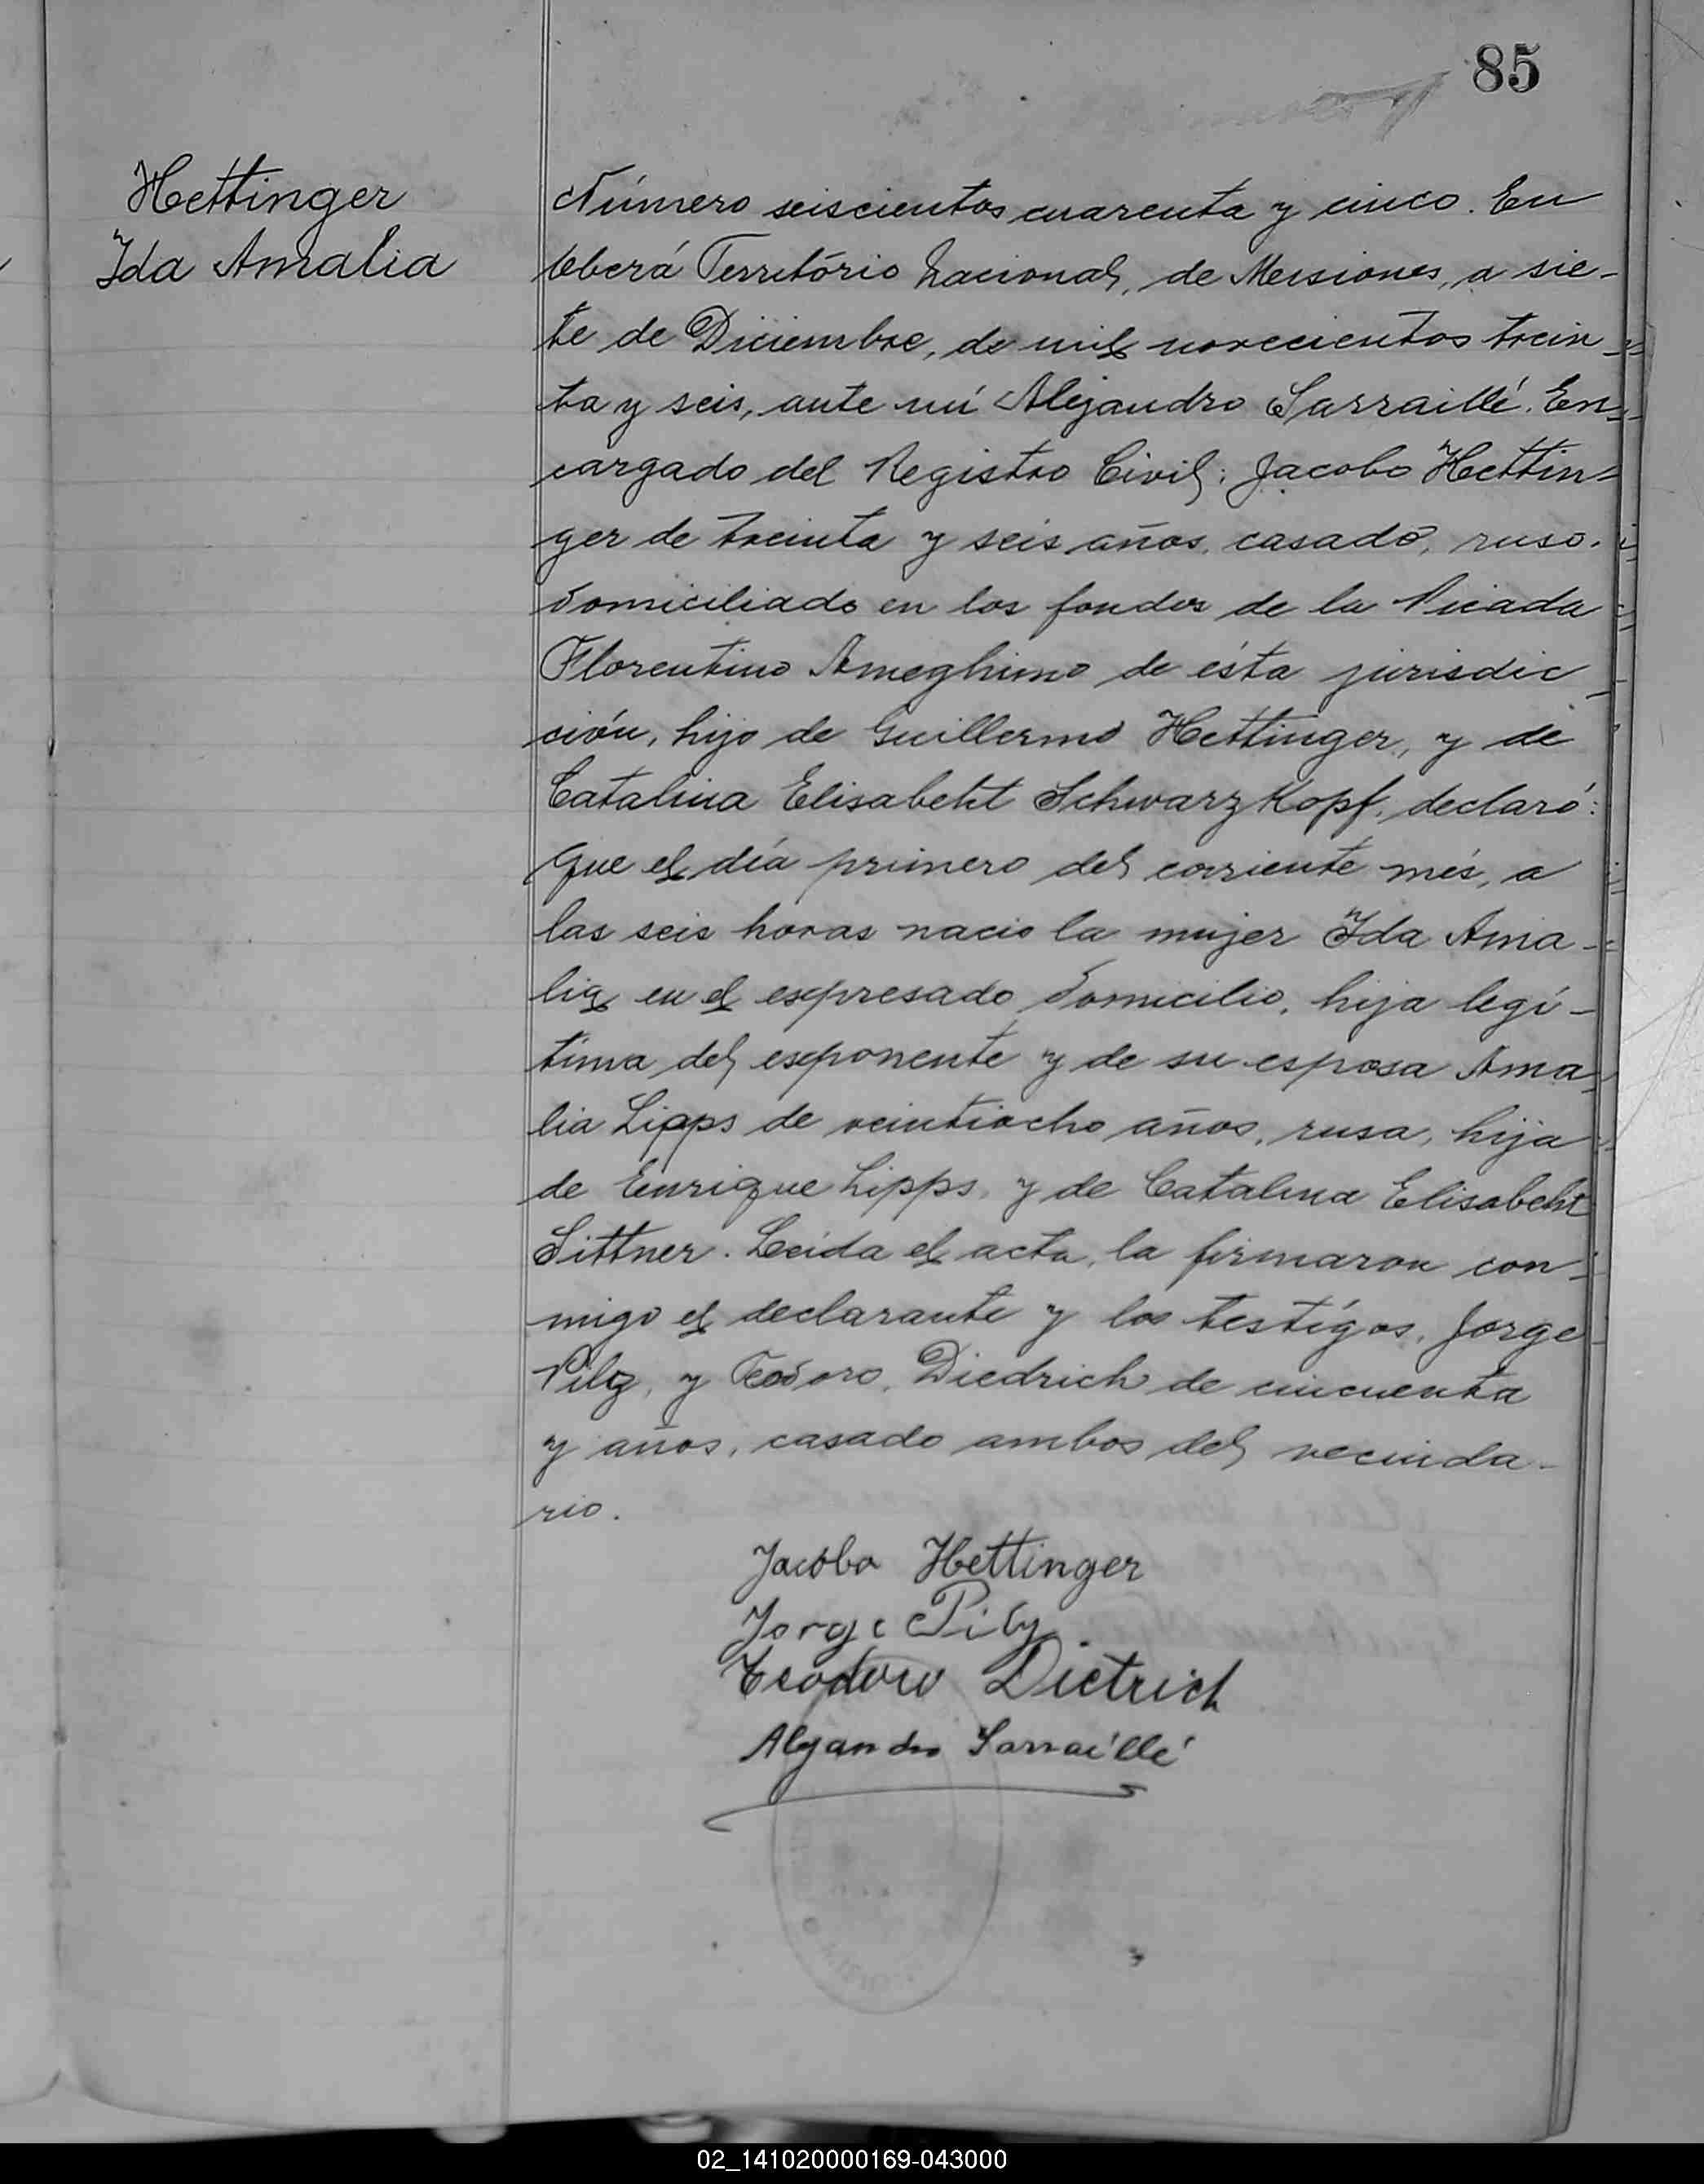 85
Hettinger
Ida Amalia
Número seiscientos cuarenta y cinco. En
Oberá Território Nacional, de Missiones, a sie-
te de Diciembre, de mil novecientos trein-
ta y seis, ante mí Alejandro Sarraillé. En-
cargado del Registro Civil; Jacobo Hettin-
ger de treinta y seis años, casado, ruso.
domiciliado en los fondos de la Picada
Florentino Ameghino de ésta jurisdic-
ción, hijo de Guillermo Hettinger, y de
Catalina Elisabeht Schwarzkopf, declaró:
Que el día primero del corriente més, a
las seis horas nacio la mujer Ida Ama-
lia, en el expresado domicilio, hija legí-
tima del exponente y de su esposa Ama-
lia Lipps de veintiocho años, rusa, hija
de Enrique Lipps, y de Catalina Elisabeht
Sittner. Leída el acta, la firmaron con-
migo el declarante y los testígos, Jorge
Pilz, y Teodoro, Diedrich de cincuenta
y años, casado ambos del vecinda-
rio.
Jacobo Hettinger
Jorge Pilz.
Teodoro Dietrich
Alejandro Sarraillé
02_141020000169-043000